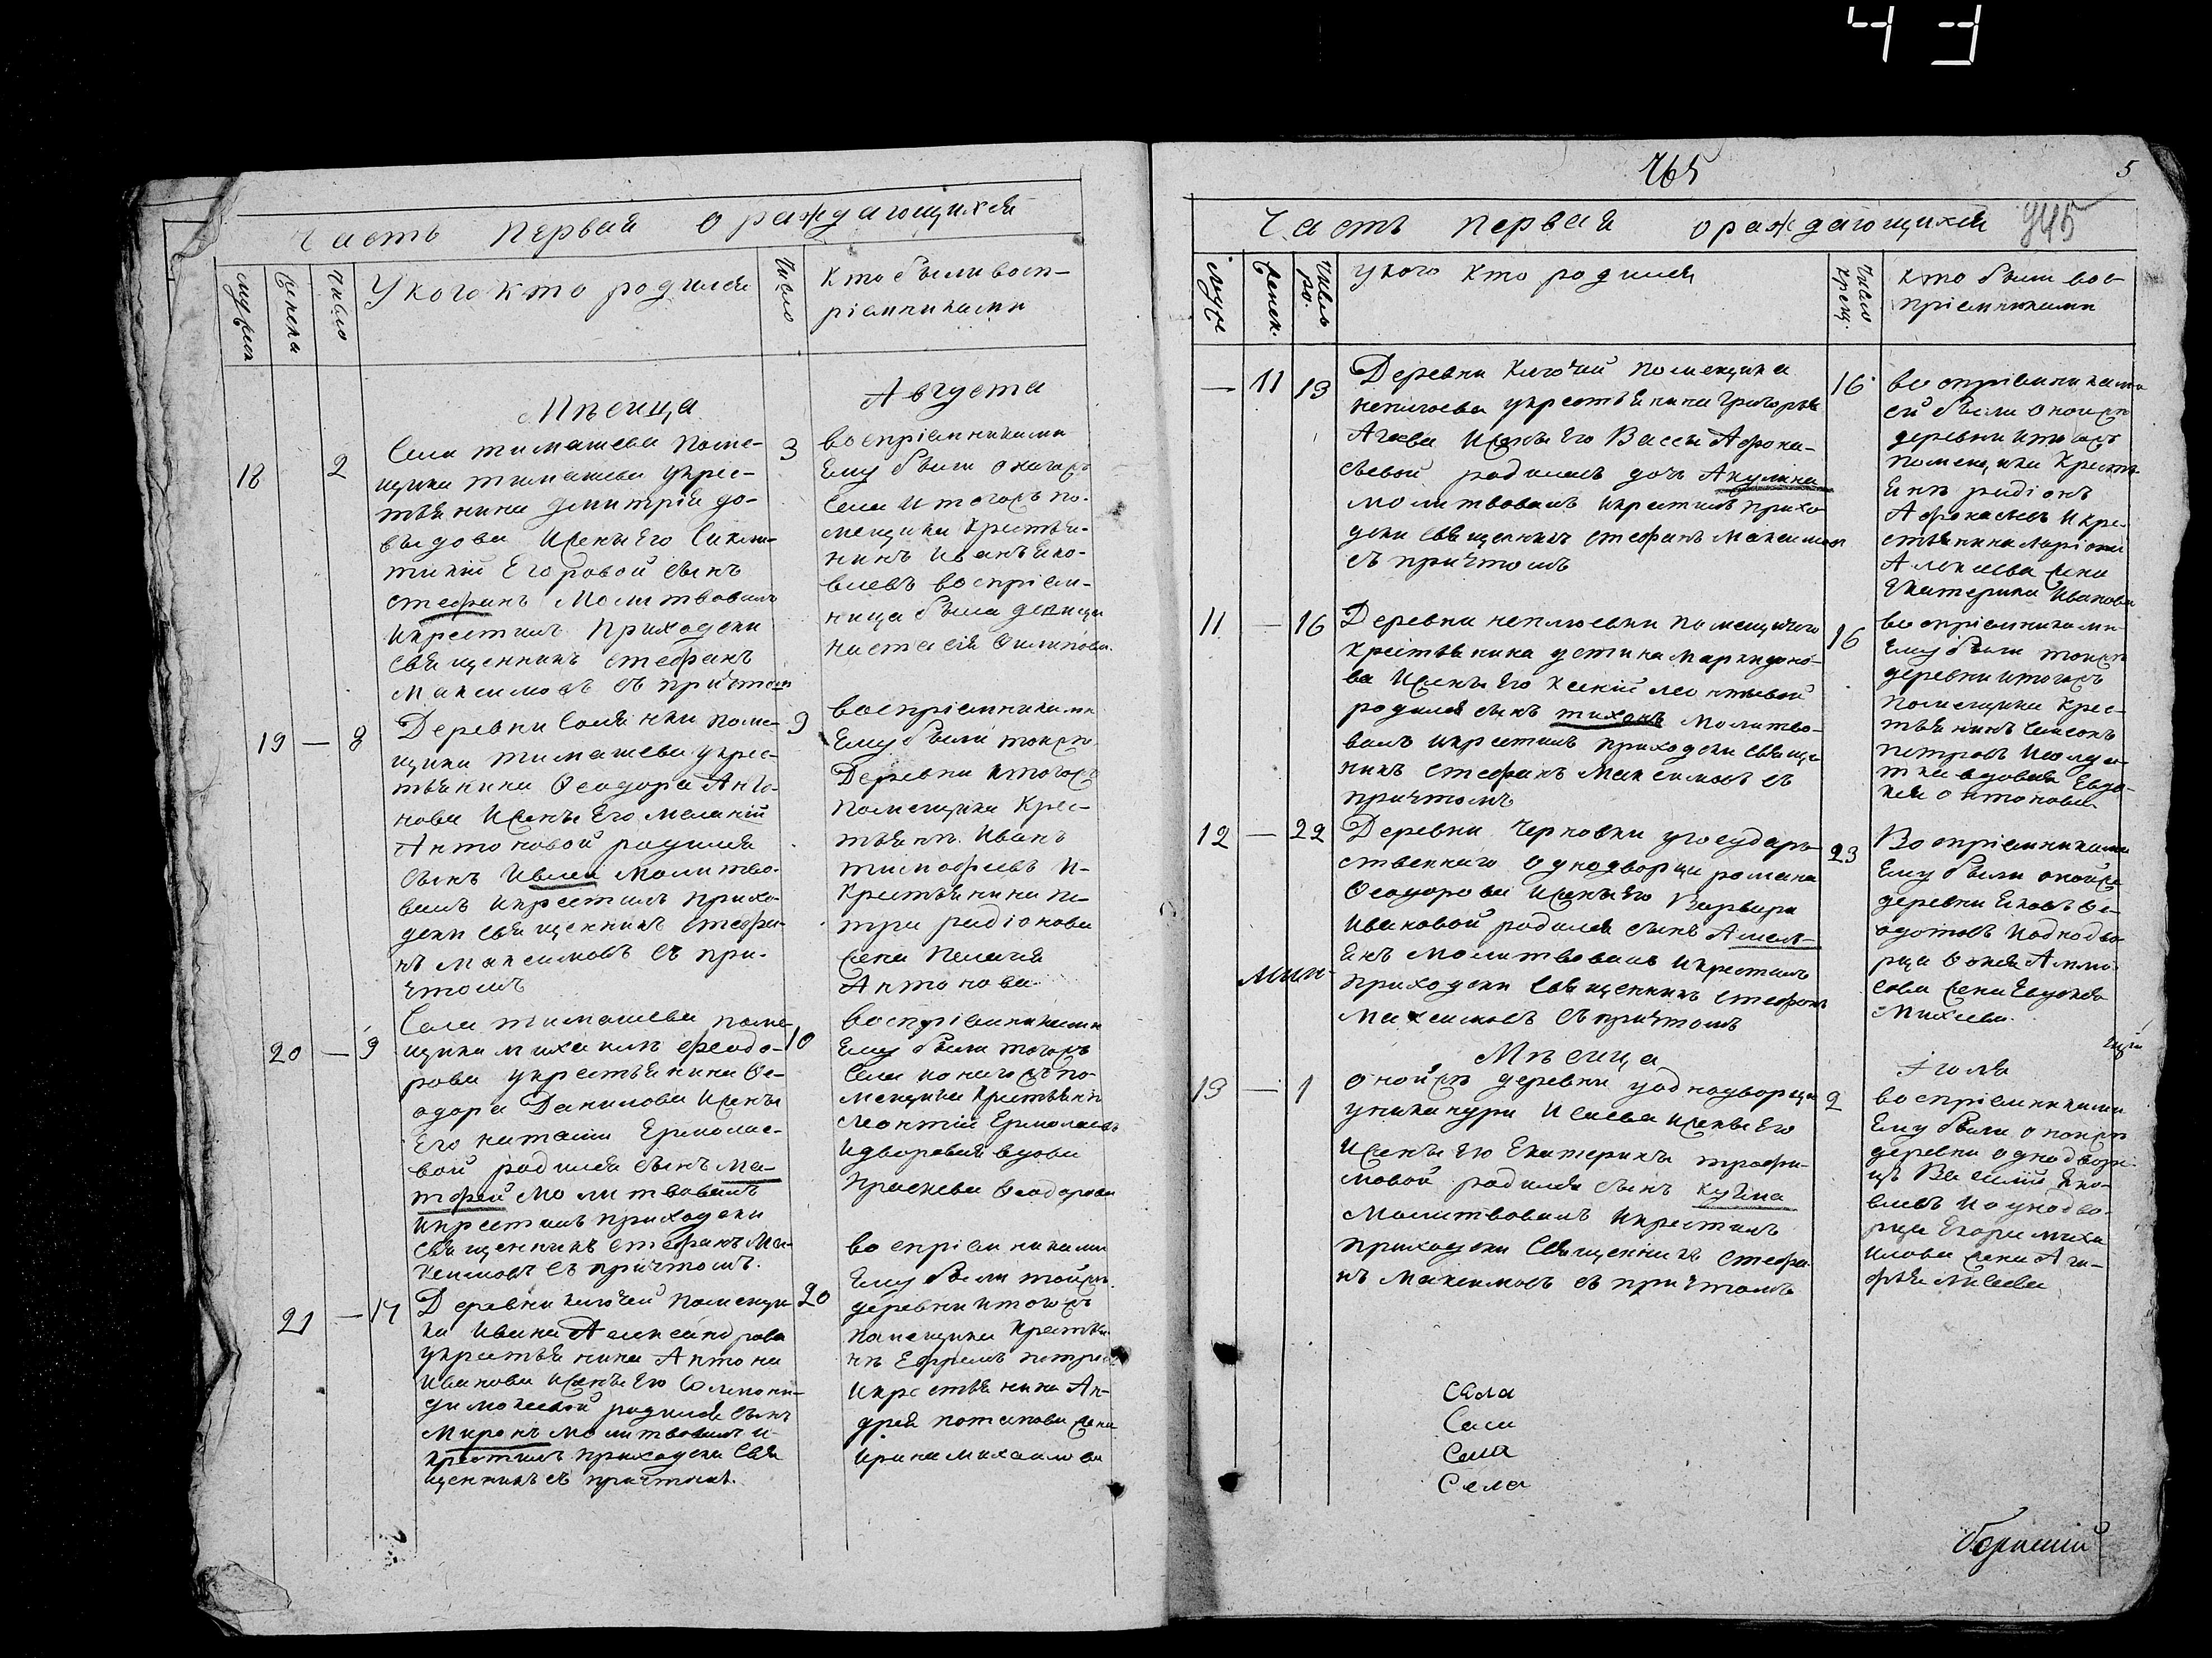 43
Часть первая о раждающихся
мужеск
женска
число
У кого кто родился
число
Кто были восп-
ріемниками
Мѣсица
Августа
18
2
Села тимашева поме-
щика тимашева укрес-
тьянина дмитрія до-
выдова Жены Его
Егоровой сынъ
стефанъ Молитвовалъ
икрестилъ Приходски
священникъ стефанъ
Максимовъ съ причтом
3
воспріемниками
Ему были онагожъ
села итогожъ по-
мещика Крестья-
нинъ Иванъ Яко-
влевъ воспріем-
ница была девица
настасія Филипова
19 — 8
Деревни Солянки поме-
щика тимашева укрес-
тьянина Феодора Анто-
нова Жены Его меланій
Антоновой родился
сынъ Ивлей молитво-
валъ икрестилъ прихо-
дски священникъ стефа-
нъ максимовъ съ при-
чтомъ
9
воспріемниками
Ему были тоижъ
Деревни итогожъ
помещика Крес-
тьянн. Иванъ
тимофеевъ и-
Крестьянина пе-
тра радіонова
жена Пелагия
Антонова
20 — 9
Села тимашева поме-
щика михаилы феодо-
рова укрестьянина Фе-
одора Данилова Жены
Его наталіи Ермолае-
вой родился сынъ ма-
тфей молитвовалъ
икрестилъ приходски
священникъ стефанъ Ма-
ксимовъ съ причтомъ.
10
воспріемниками
Ему были тогожъ
села ионагожъ по-
мещика Крестьянинъ
Леонтій Ермолаевъ
идворовая вдова
Прасковья Феодорова
21 — 17
Деревни ключей помещи-
ка Ивана Александрова
укрестьянина Антона
Иванова жены Его Соломони-
ди моисеевой родился сынъ
Миронъ молитвовалъ и-
крестилъ приходски свя
щенникъ съ причтомъ.
20
воспріемниками
Ему были тойжъ
деревни итогожъ
помещика Крестья
нъ Ефремъ петровъ
икрестьянина Ан-
дрея потапова жена
Ирина михаилова
765
5
945
Часть первая ораждающихся
муже
женск.
Число ро.
укого кто родился
Число крещ.
кто были вос-
пріемниками
— 11 13
Деревни Ключей помещика
неплюева укрестьянина Григорья
Агеева Жены Его Вассы Афона-
сьевой родилась дочь Акулина
молитвовалъ икрестилъ прихо
дски священникъ стефанъ Максимов
съ причтомъ
16
воспріемниками
ей были оноижъ
деревни итогожъ
помещика Кресть-
янн радіонъ
Афонасьевъ икре-
стьянина ларіона
Алексеева жена
Екатерина Иванова
11 — 16
Деревни неплюевки помещичего
крестьянина устина маркидоно-
ва Жены Его Ксеній леонтьевой
родился сынъ тихонъ молитво-
валъ икрестилъ приходски священ-
никъ стефанъ Максимовъ съ
причтомъ
16
воспріемниками
Ему были тоижъ
деревни итогожъ
помещика крес-
тьянинъ Самсонъ
петровъ исолда-
тка вдовая Евдо-
кея Антонова
12 — 22
Деревни черновки угосудар-
ственнаго Однодворца романа
Феодорова Жены Его Варвары
Ивановой родился сынъ Амель-
янъ молитвовалъ икрестилъ
приходски священникъ стефанъ
Максимовъ съ причтомъ
23
Воспріемниками
Ему были онойже
деревни Яковъ Фе-
одотовъ иоднодво
рца Фокея Амма-
сова жена Евдокея
Михеева.
Мѣсица
Іюля
13 — 1
онойжъ деревни уоднодворца
уникандра Исаева Жены Его
Жены Его Екатерины трофи-
мовой родился сынъ Кузма
молитвовалъ икрестилъ
приходски священникъ стефа
нъ Максимовъ съ причтомъ
2
воспріемниками
Ему были онойжъ
деревни однодвор-
цъ Василій Яко-
влевъ иоднодво-
рца Егора миха
илова жена Ага-
фья Мисеева
Села
Села
Села
Села